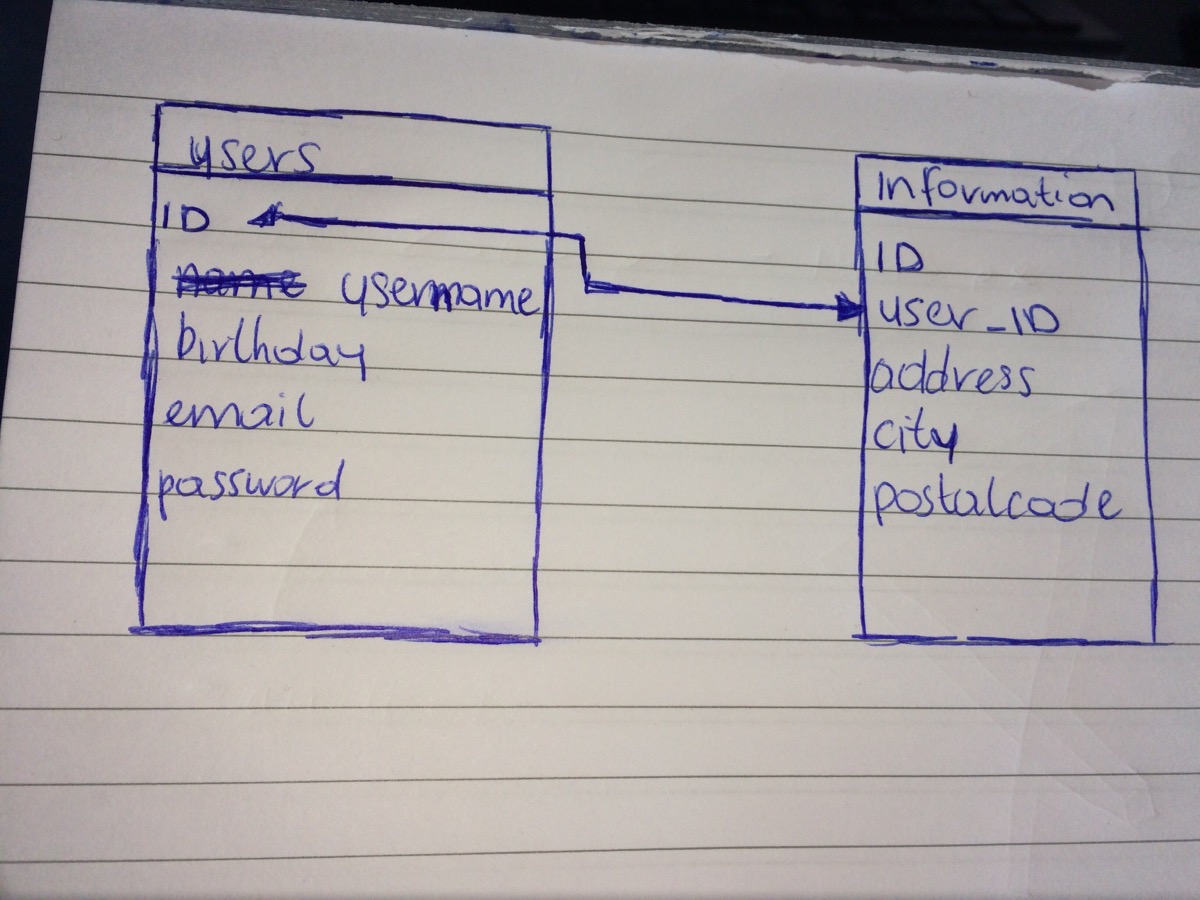 users
ID
name username
birthday
email
password
Information
ID
user_ID
address
city
postalcode